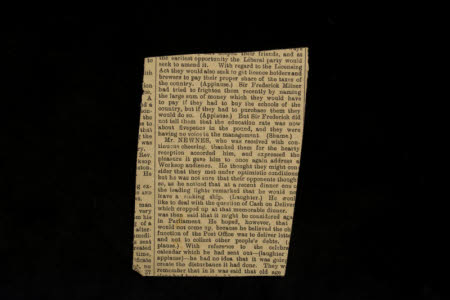 their friends, and at
the earliest opportunity the Liberal party would
seek to amend it. With regard to the Licensing
Act they would also seek to get licence holders and
brewers to pay their proper share of the taxes of
the country. (Applause.) Sir Frederick Milner
had tried to frighten them recently by naming
the large sum of money which they would have
to pay if they had to buy the schools of the
country, but if they had to purchase them they
would do so. (Applause.) But Sir Frederick did
not tell them that the education rate was now
about fivepence in the pound, and they were
having no voice in the management. (Shame.)
Mr. NEWNES, who was received with con-
tinuous cheering, thanked them for the hearty
reception accorded him, and expressed the
pleasure it gave him to once again address a
Worksop audience. He thought they might con-
sider that they met under optimistic conditions
but he was not sure that their opponents though
so, as he noticed that at a recent dinner one o
the leading lights remarked that he would not
leave a sinking ship. (Laughter.) He woul
like to deal with the question of Cash on Deliver
which cropped up at that memorable dinner.
was then said that it might be considered aga
in Parliament. He hoped, however, that
would not come up, because he believed the
function of the Post Office was to deliver lette
and not to collect other people's debts.
plause.) With reference to the celebra
calendar which he had sent out—(laughter
applause)—he had no idea that it was going
create the disturbance it had done. They w
remember that in it was said that old age